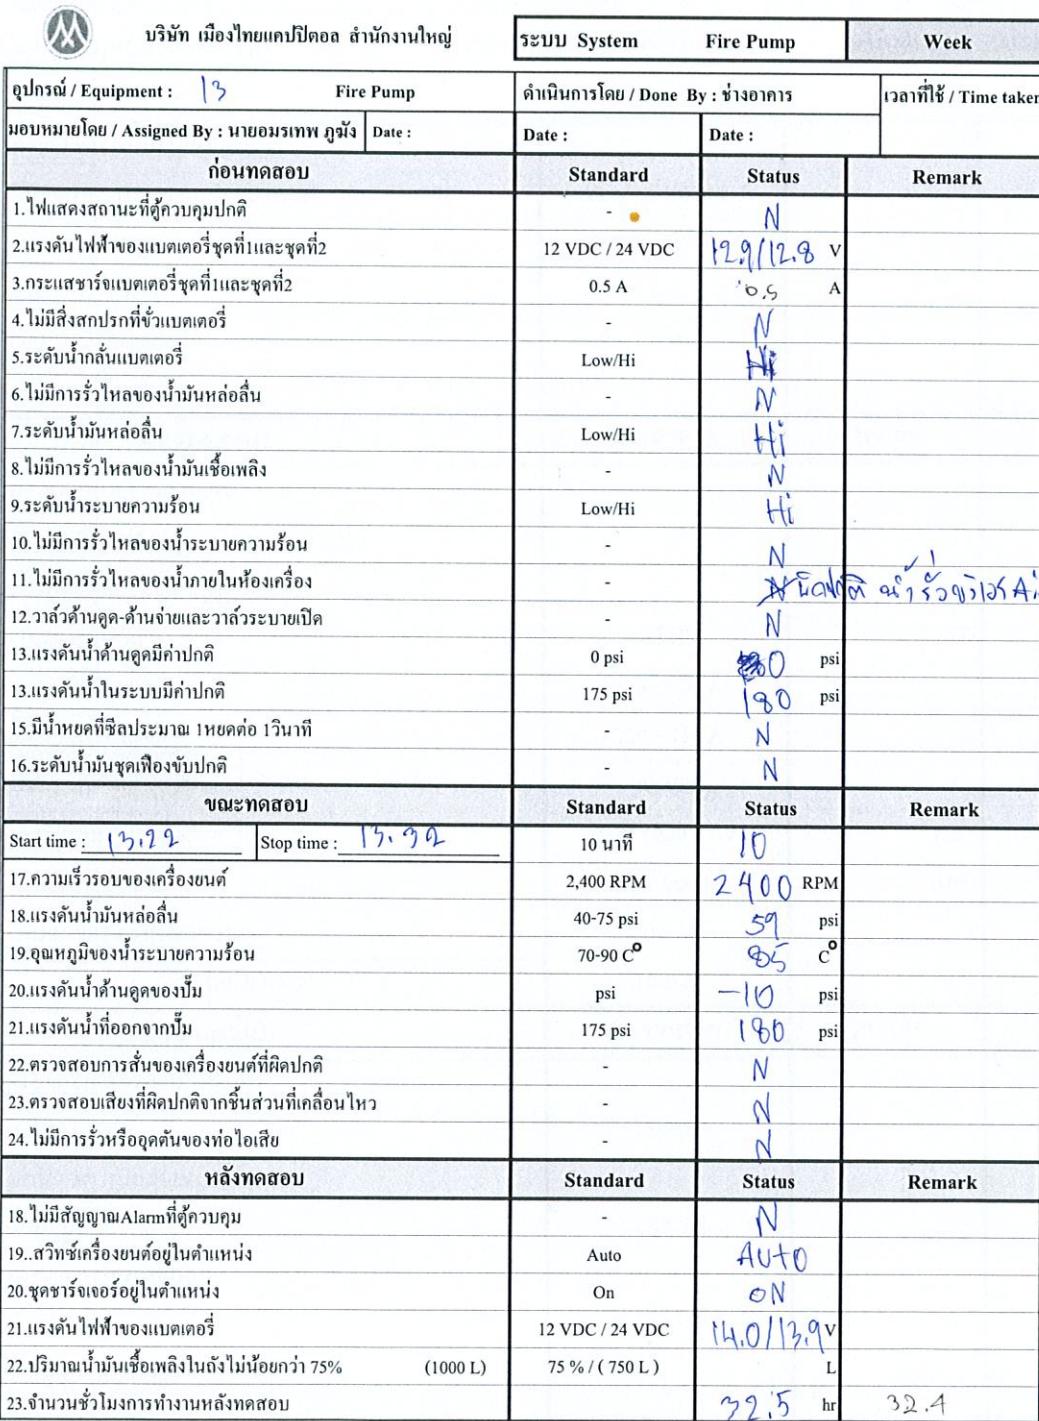 บริษัท เมืองไทยแคปปิตอล สำนักงานใหญ่ ระบบ System Fire Pump Week
อุปกรณ์ / Equipment : 13 Fire Pump ดำเนินการโดย / Done By : ช่างอาคาร เวลาที่ใช้ / Time taken
มอบหมายโดย / Assigned By : นายอมรเทพ ภูฆัง Date : Date : Date :
ก่อนทดสอบ Standard Status Remark
1.ไฟแสดงสถานะที่ตู้ควบคุมปกติ - N
2.แรงดันไฟฟ้าของแบตเตอรี่ชุดที่1และชุดที่2 12 VDC / 24 VDC 12.9/12.8 V
3.กระแสชาร์จแบตเตอรี่ชุดที่1และชุดที่2 0.5 A 0.5 A
4.ไม่มีสิ่งสกปรกที่ขั้วแบตเตอรี่ - N
5.ระดับน้ำกลั่นแบตเตอรี่ Low/Hi Hi
6.ไม่มีการรั่วไหลของน้ำมันหล่อลื่น - N
7.ระดับน้ำมันหล่อลื่น Low/Hi Hi
8.ไม่มีการรั่วไหลของน้ำมันเชื้อเพลิง - N
9.ระดับน้ำระบายความร้อน Low/Hi Hi
10.ไม่มีการรั่วไหลของน้ำระบายความร้อน - N
11.ไม่มีการรั่วไหลของน้ำภายในห้องเครื่อง - N น้ำรั่ว
12.วาล์วด้านดูด-ด้านจ่ายและวาล์วระบายเปิด - N
13.แรงดันน้ำด้านดูดมีค่าปกติ 0 psi 0 psi
13.แรงดันน้ำในระบบมีค่าปกติ 175 psi 180 psi
15.มีน้ำหยดที่ซีลประมาณ 1หยดต่อ 1วินาที - N
16.ระดับน้ำมันชุดเฟืองขับปกติ - N
ขณะทดสอบ Standard Status Remark
Start time : 13.22 Stop time : 13.32 10 นาที 10
17.ความเร็วรอบของเครื่องยนต์ 2,400 RPM 2400 RPM
18.แรงดันน้ำมันหล่อลื่น 40-75 psi 59 psi
19.อุณหภูมิของน้ำระบายความร้อน 70-90 C° 85 C°
20.แรงดันน้ำด้านดูดของปั๊ม psi -10 psi
21.แรงดันน้ำที่ออกจากปั๊ม 175 psi 180 psi
22.ตรวจสอบการสั่นของเครื่องยนต์ที่ผิดปกติ - N
23.ตรวจสอบเสียงที่ผิดปกติจากชิ้นส่วนที่เคลื่อนไหว - N
24.ไม่มีการรั่วหรืออุดตันของท่อไอเสีย - N
หลังทดสอบ Standard Status Remark
18.ไม่มีสัญญาณAlarmที่ตู้ควบคุม - N
19..สวิทซ์เครื่องยนต์อยู่ในตำแหน่ง Auto AUtO
20.ชุดชาร์จเจอร์อยู่ในตำแหน่ง On ON
21.แรงดันไฟฟ้าของแบตเตอรี่ 12 VDC / 24 VDC 14.0/13.9 V
22.ปริมาณน้ำมันเชื้อเพลิงในถังไม่น้อยกว่า 75% (1000 L) 75 % / ( 750 L ) L
23.จำนวนชั่วโมงการทำงานหลังทดสอบ 32.5 hr 32.4